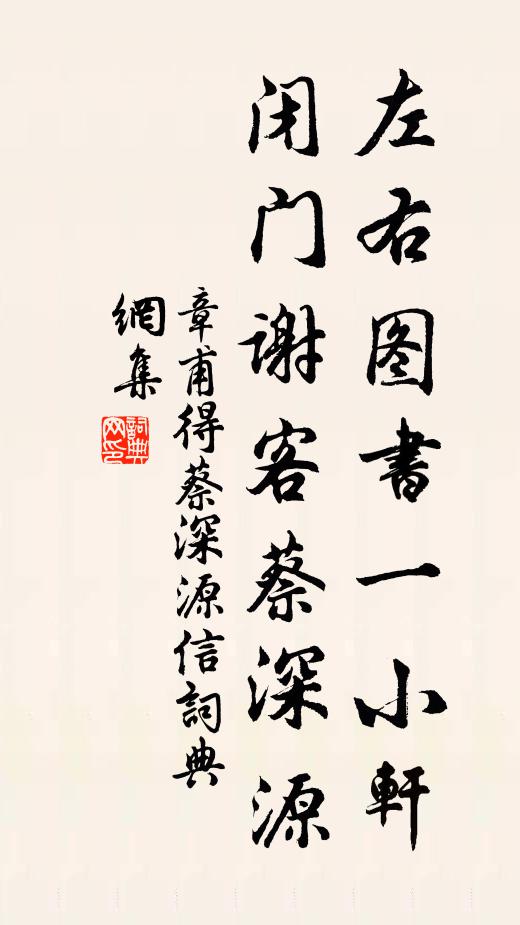 左右图書一小軒
闭门謝客蔡深源
章甫得蔡深源信詞典
網集
詞典網印